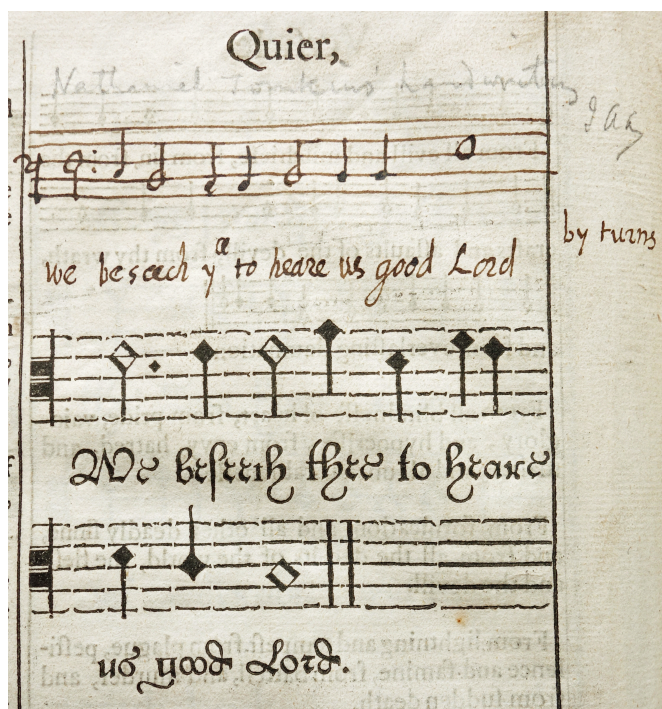 Quier,
Nathaniel Tomkins' handwriting
we beseech yᵉ to heare us good Lord
by turns
We beseech thee to heare
us good Lord.